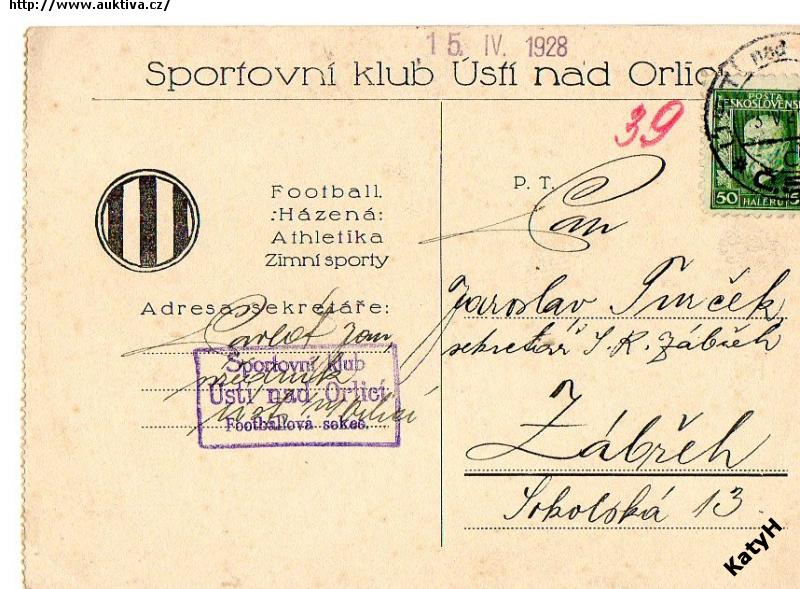 http://www.auktiva.cz/
15. IV. 1928
Sportovní klub Ústí nad Orlicí
39
POŠTA
ČESKOSLOVENSKÁ
50
HALÉŘŮ
Football.
:Házená:
Athletika
Zimní sporty
Adresa sekretáře:
Jan,
Sportovní klub
Ústí nad Orlicí
Footballová sekce.
P. T.
Pan
Jaroslav Turček,
sekretář S. K. Zábřeh
Zábřeh
Sokolská 13
KatyH